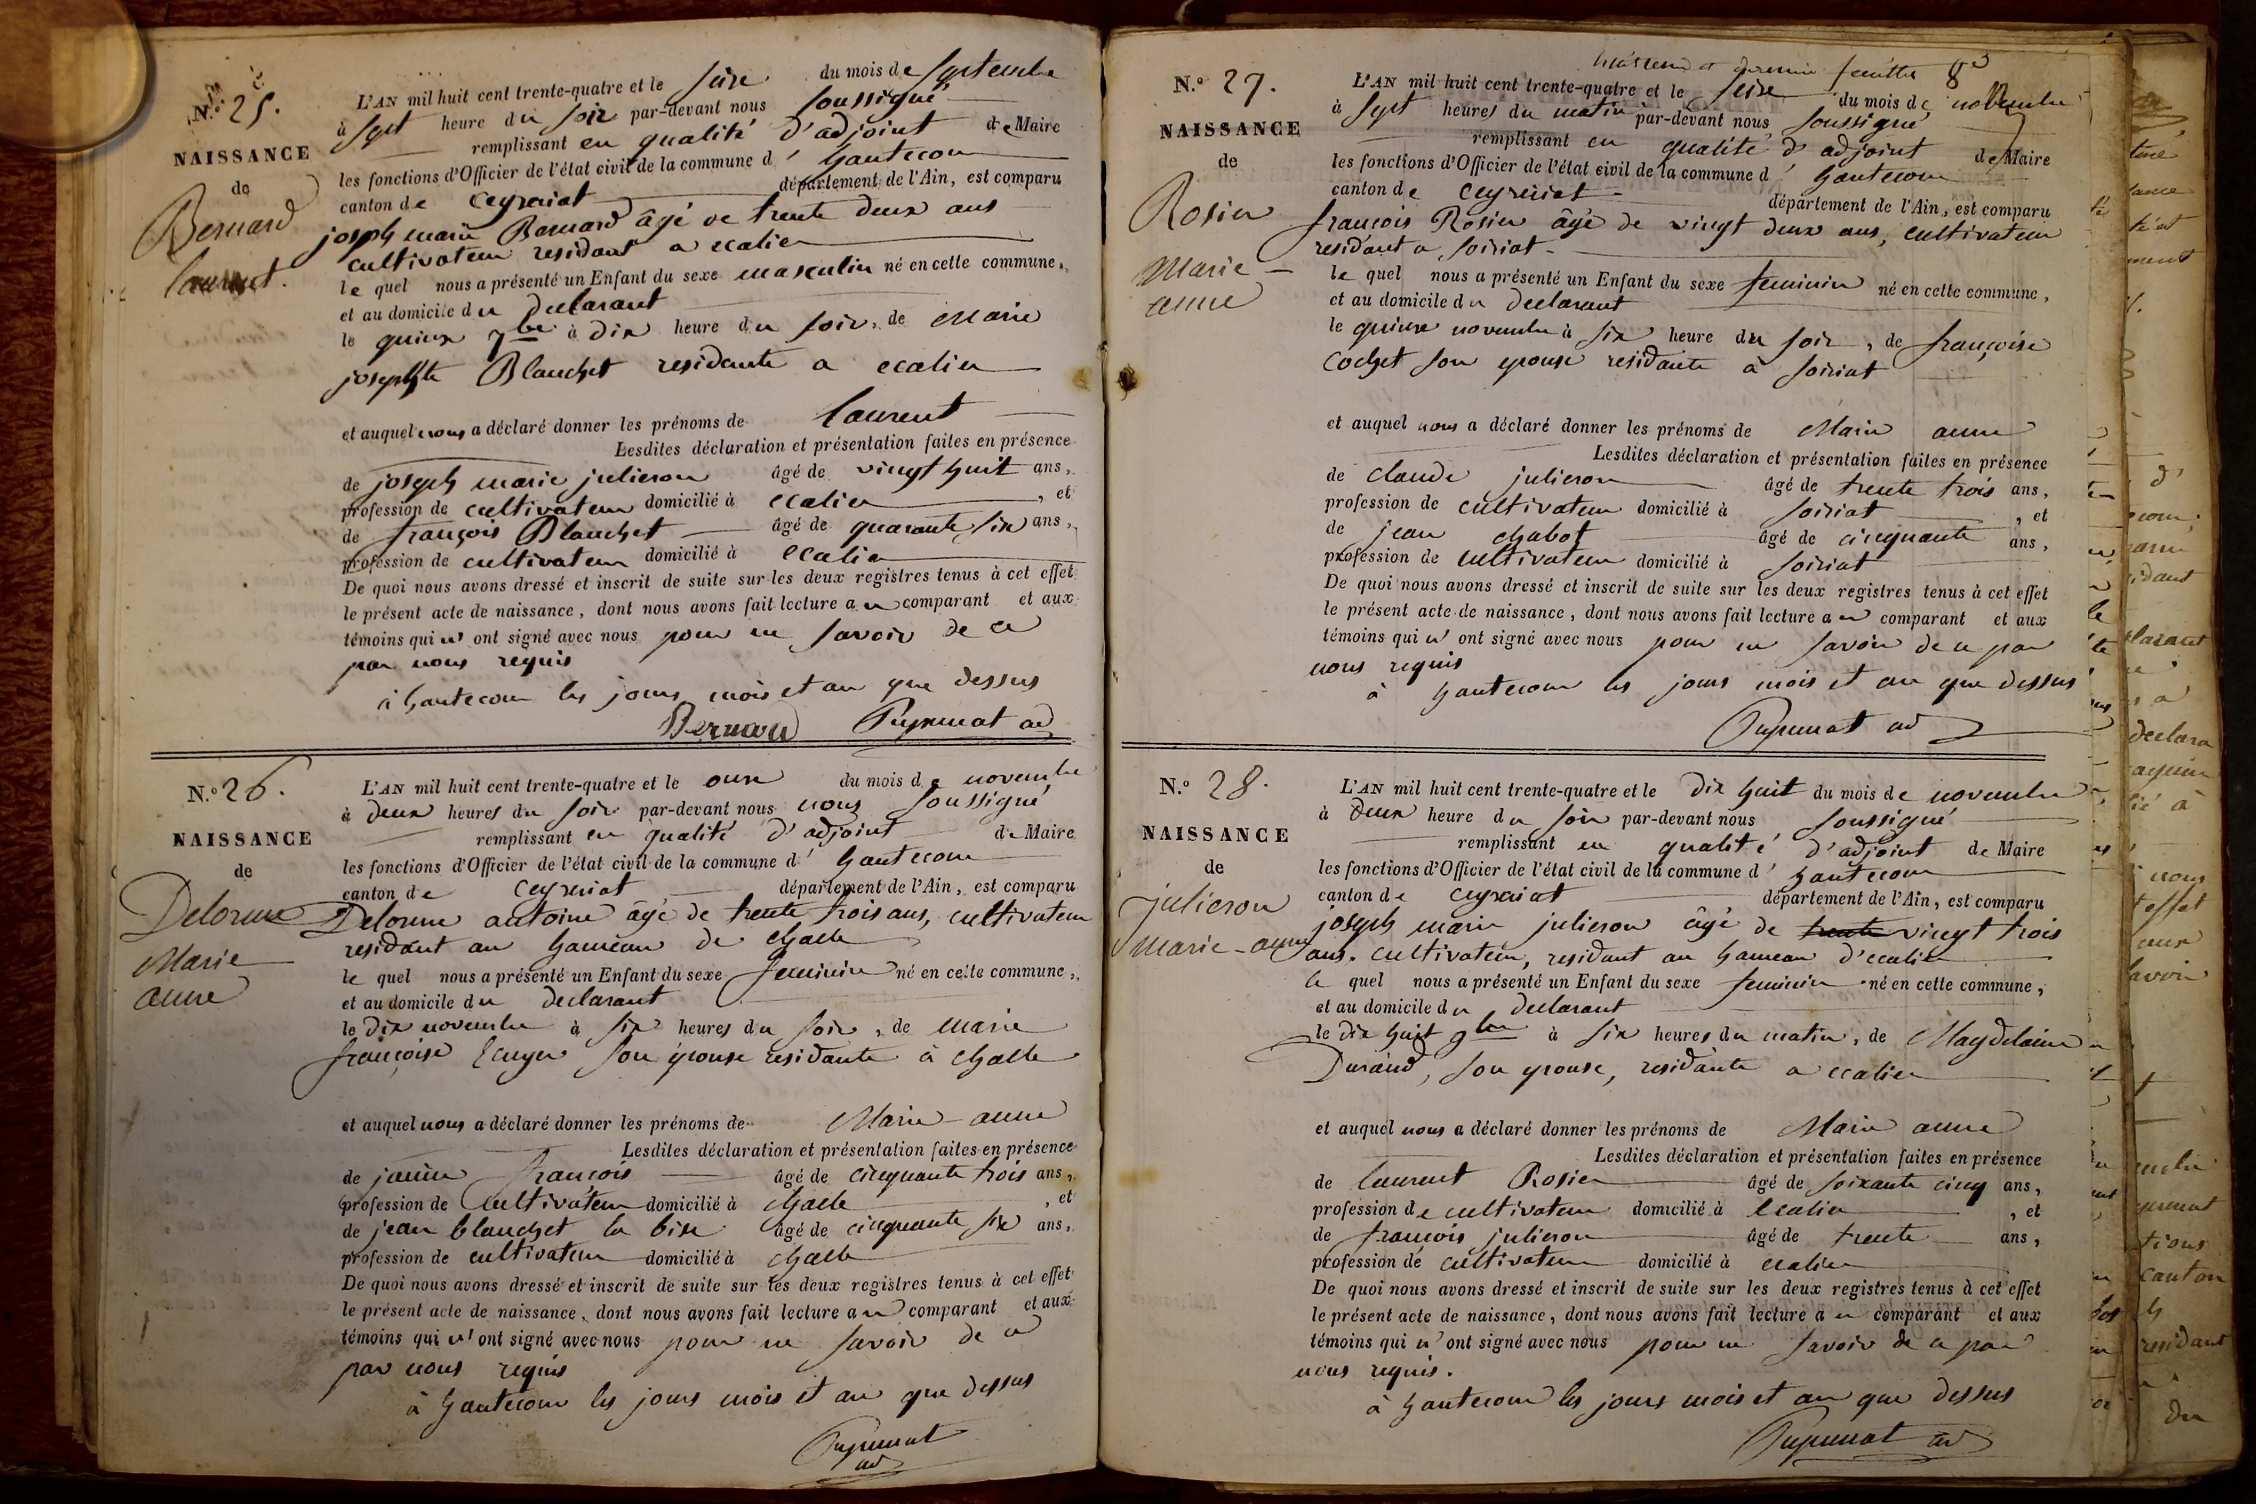 N.º 25.
NAISSANCE
de
Bernard
laurent.
L'AN mil huit cent trente-quatre et le seize du mois de septembre
à sept heure du soir par-devant nous soussigné
remplissant en qualité d'adjoint de Maire
les fonctions d'Officier de l'état civil de la commune d' hautecour
canton de ceyzeriat département de l'Ain, est comparu
joseph marie Bernard âgé de trente deux ans
cultivateur residant a ecalier
le quel nous a présenté un Enfant du sexe masculin né en cette commune,
et au domicile du declarant
le quinze 7bre à dix heure du soir, de Marie
josephte Blanchet residante a ecalier
et auquel nous a déclaré donner les prénoms de laurent
Lesdites déclaration et présentation faites en présence
de joseph marie julieron âgé de vingt huit ans,
profession de cultivateur domicilié à ecalier, et
de françois Blanchet âgé de quarante six ans,
profession de cultivateur domicilié à ecalier
De quoi nous avons dressé et inscrit de suite sur les deux registres tenus à cet effet
le présent acte de naissance, dont nous avons fait lecture au comparant et aux
témoins qui n'ont signé avec nous pour ne savoir de ce
par nous requis
à hautecour les jours mois et an que dessus
Bernard ad
N.º 26.
NAISSANCE
de
Delorme
Marie
anne
L'AN mil huit cent trente-quatre et le onze du mois de novembre
à deux heures du soir par-devant nous nous soussigné
remplissant en qualité d'adjoint de Maire
les fonctions d'Officier de l'état civil de la commune d' hautecour
canton de ceyzeriat département de l'Ain, est comparu
Delorme antoine âgé de trente trois ans, cultivateur
residant au hameau de challe
le quel nous a présenté un Enfant du sexe feminin né en cette commune,
et au domicile du declarant
le dix novembre à six heures du soir, de Marie
françoise son épouse residante à challe
et auquel nous a déclaré donner les prénoms de Marie-anne
Lesdites déclaration et présentation faites en présence
de françois âgé de cinquante trois ans,
profession de cultivateur domicilié à challe, et
de jean blanchet la bise âgé de cinquante six ans,
profession de cultivateur domicilié à challe
De quoi nous avons dressé et inscrit de suite sur les deux registres tenus à cet effet
le présent acte de naissance, dont nous avons fait lecture au comparant et aux
témoins qui n'ont signé avec nous pour ne savoir de ce
par nous requis
à hautecour les jours mois et an que dessus
ad
feuillet 8
N.º 27.
NAISSANCE
de
Rosier
Marie-
anne
L'AN mil huit cent trente-quatre et le seize du mois de novembre
à sept heures du matin par-devant nous soussigné
remplissant en qualité d'adjoint de Maire
les fonctions d'Officier de l'état civil de la commune d' hautecour
canton de ceyzeriat département de l'Ain, est comparu
françois Rosier âgé de vingt deux ans, cultivateur
residant a soiriat
le quel nous a présenté un Enfant du sexe feminin né en cette commune,
et au domicile du declarant
le quinze novembre à six heure du soir, de françoise
cochet son epouse residante à soiriat
et auquel nous a déclaré donner les prénoms de Marie anne
Lesdites déclaration et présentation faites en présence
de claude julieron âgé de trente trois ans,
profession de cultivateur domicilié à soiriat, et
de jean chabot âgé de cinquante ans,
profession de cultivateur domicilié à soiriat
De quoi nous avons dressé et inscrit de suite sur les deux registres tenus à cet effet
le présent acte de naissance, dont nous avons fait lecture au comparant et aux
témoins qui n'ont signé avec nous pour ne savoir de ce par
nous requis
à hautecour les jours mois et an que dessus
ad
N.º 28.
NAISSANCE
de
julieron
marie-anne
L'AN mil huit cent trente-quatre et le dix huit du mois de novembre
à deux heure du soir par-devant nous soussigné
remplissant en qualité d'adjoint de Maire
les fonctions d'Officier de l'état civil de la commune d' hautecour
canton de ceyzeriat département de l'Ain, est comparu
joseph marie julieron âgé de trente vingt trois
ans. cultivateur, residant au hameau d'ecalier
le quel nous a présenté un Enfant du sexe feminin né en cette commune,
et au domicile du declarant
le dix huit 9bre à six heures du matin, de Magdelaine
Durand, son epouse, residante a ecalier
et auquel nous a déclaré donner les prénoms de Marie anne
Lesdites déclaration et présentation faites en présence
de laurent Rosier âgé de soixante cinq ans,
profession de cultivateur domicilié à ecalier, et
de françois julieron âgé de trente ans,
profession de cultivateur domicilié à ecalier
De quoi nous avons dressé et inscrit de suite sur les deux registres tenus à cet effet
le présent acte de naissance, dont nous avons fait lecture au comparant et aux
témoins qui n'ont signé avec nous pour ne savoir de ce par
nous requis.
à hautecour les jours mois et an que dessus
ad